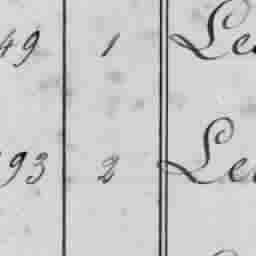 49 1 Le
93 2 Le